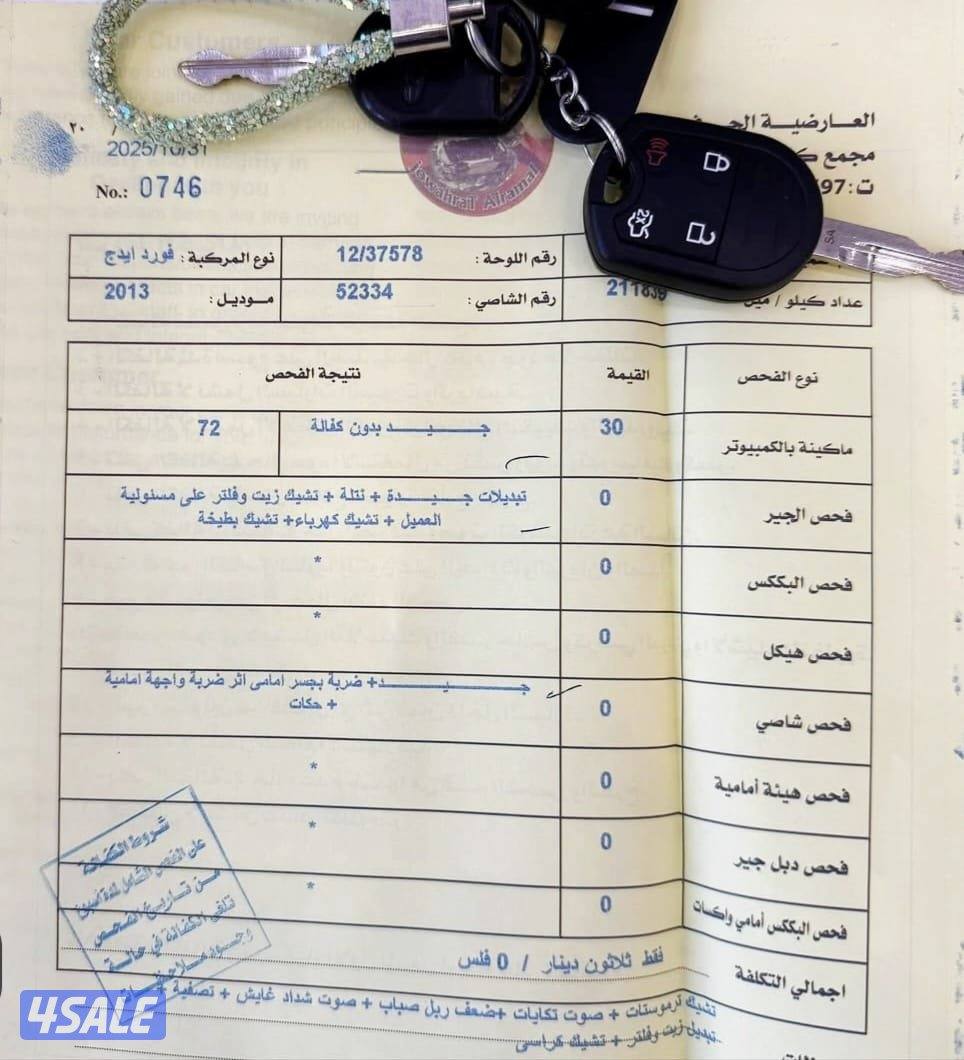 العارضية الحرفية
مجمع
ت: 97
20 /
2025/10/31
No.: 0746
TowaħraT Alramal
نوع المركبة : فورد ايدج
رقم اللوحة : 12/37578
موديل : 2013
رقم الشاصي : 52334
عداد كيلو / ميل 211839
نوع الفحص القيمة نتيجة الفحص
ماكينة بالكمبيوتر 30 جـــيـــد بدون كفالة 72
فحص الجير 0 تبديلات جـــيـــدة + نتلة + تشيك زيت وفلتر على مسئولية
العميل + تشيك كهرباء+ تشيك بطيخة
فحص البككس 0 *
فحص هيكل 0 *
فحص شاصي 0 جـــيـــد+ ضربة بجسر امامى اثر ضربة واجهة امامية
+ حكات
فحص هيئة أمامية 0 *
فحص دبل جير 0 *
فحص البككس أمامي واكسات 0 *
اجمالي التكلفة فقط ثلاثون دينار / 0 فلس
تشيك ترموستات + صوت تكايات +ضعف ربل صباب + صوت شداد غايش + تصفية +
تبديل زيت وفلتر + تشيك كراسى
شروط الكفالة
على الفحص الشامل لمدة اسبوعين
من تاريخ الفحص
تلغى الكفالة في حالة
وجود ملاحظات
4SALE